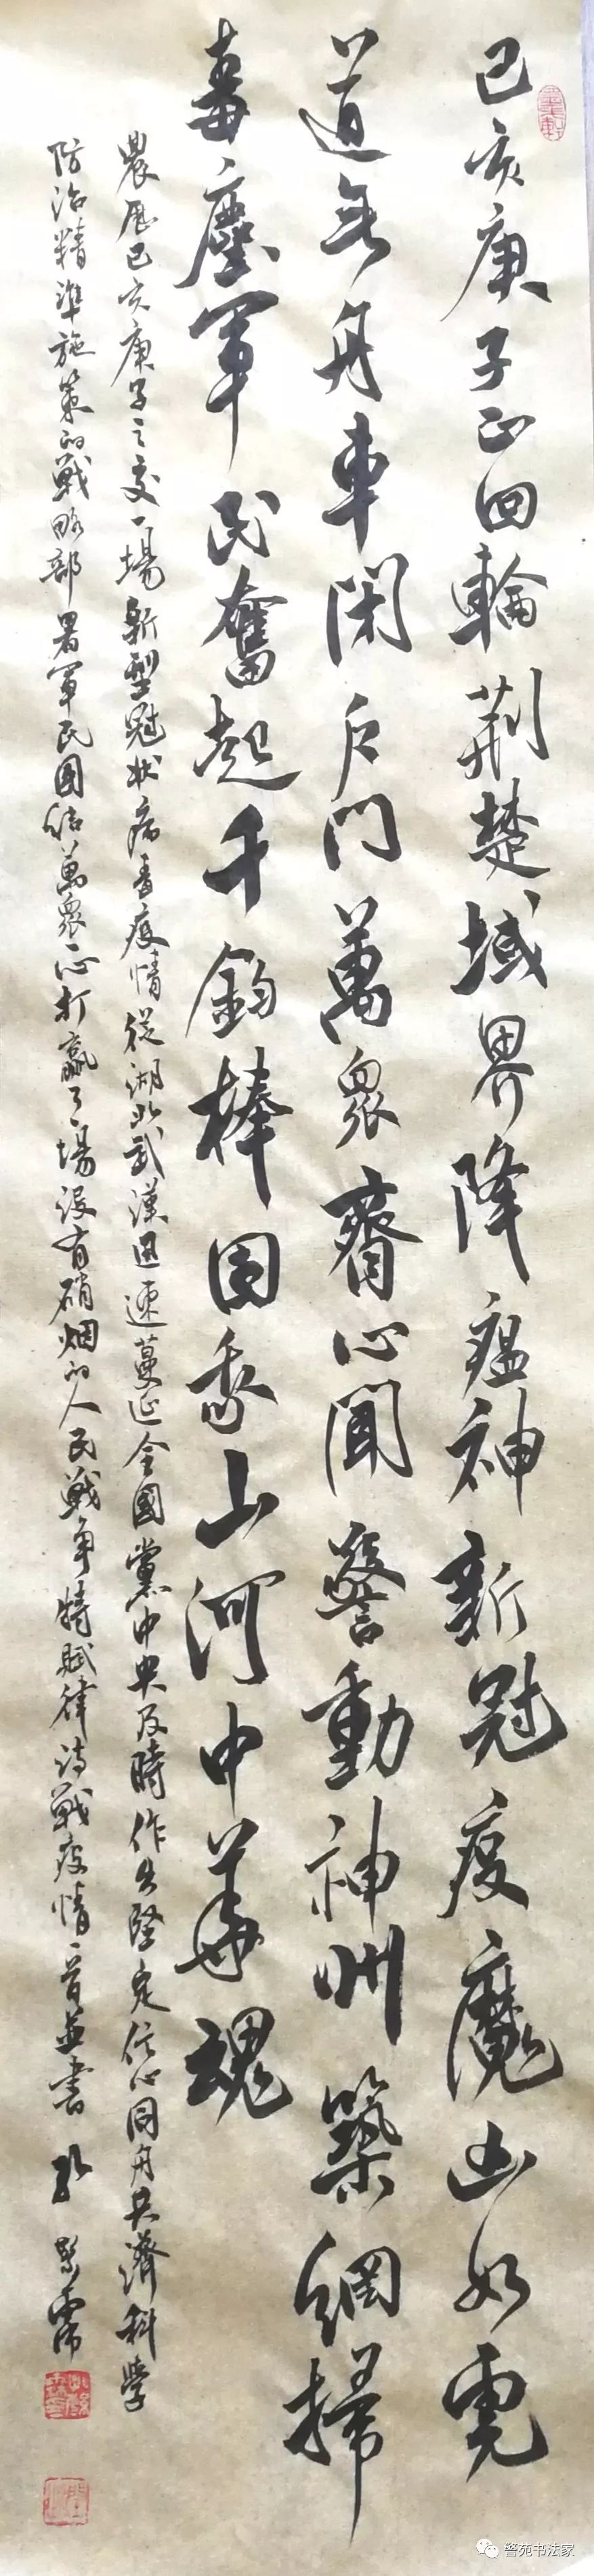 己亥庚子正回輪荆楚域界降瘟神新冠疫魔凶如虎
道無舟車閉户門萬衆齊心聞警動神州築網掃
毒塵軍民奮起千鈞棒固我山河中華魂
農歷己亥庚子之交一場新型冠狀病毒疫情從湖北武漢迅速蔓延全國黨中央及時作出堅定信心同舟共濟科學
防治精準施策的戰略部署軍民團結萬衆一心打贏了一場没有硝烟的人民戰争特賦律詩戰疫情一首並書
警苑书法家